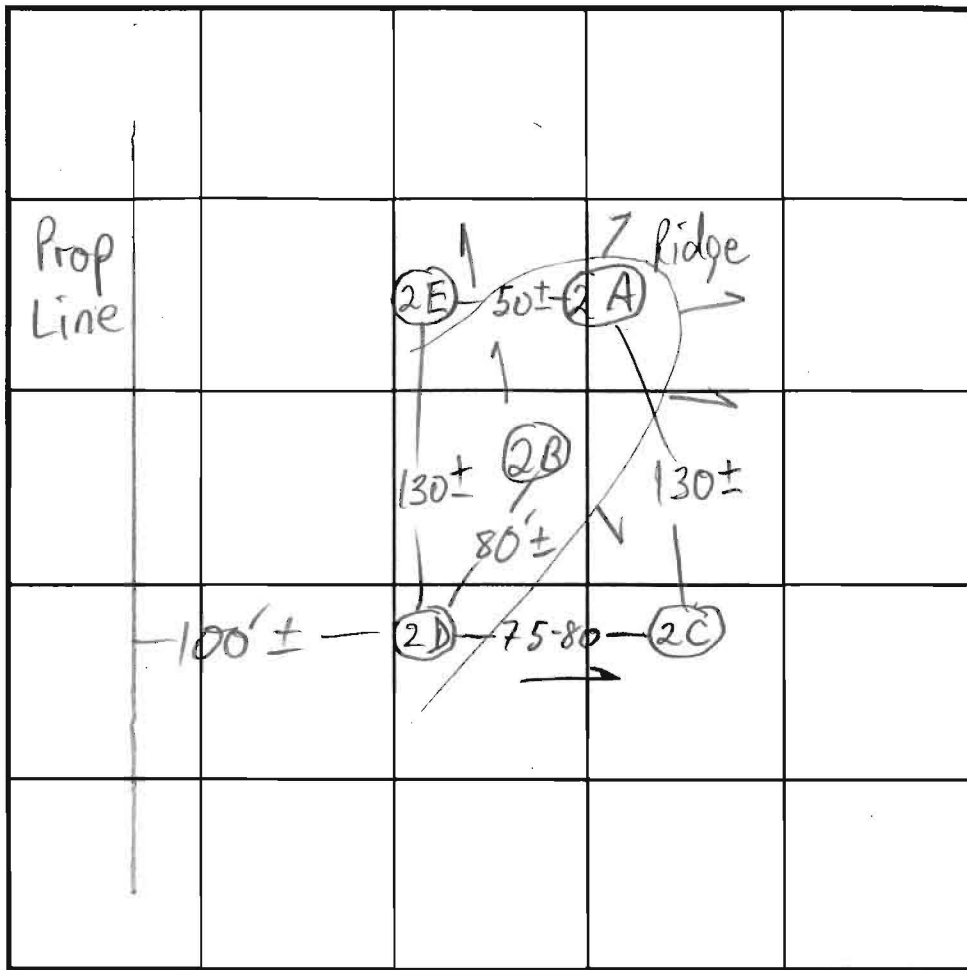 Prop
Line
Ridge
2E
50±
2A
2B
130±
130±
80'±
100'±
2D
75-80
2C